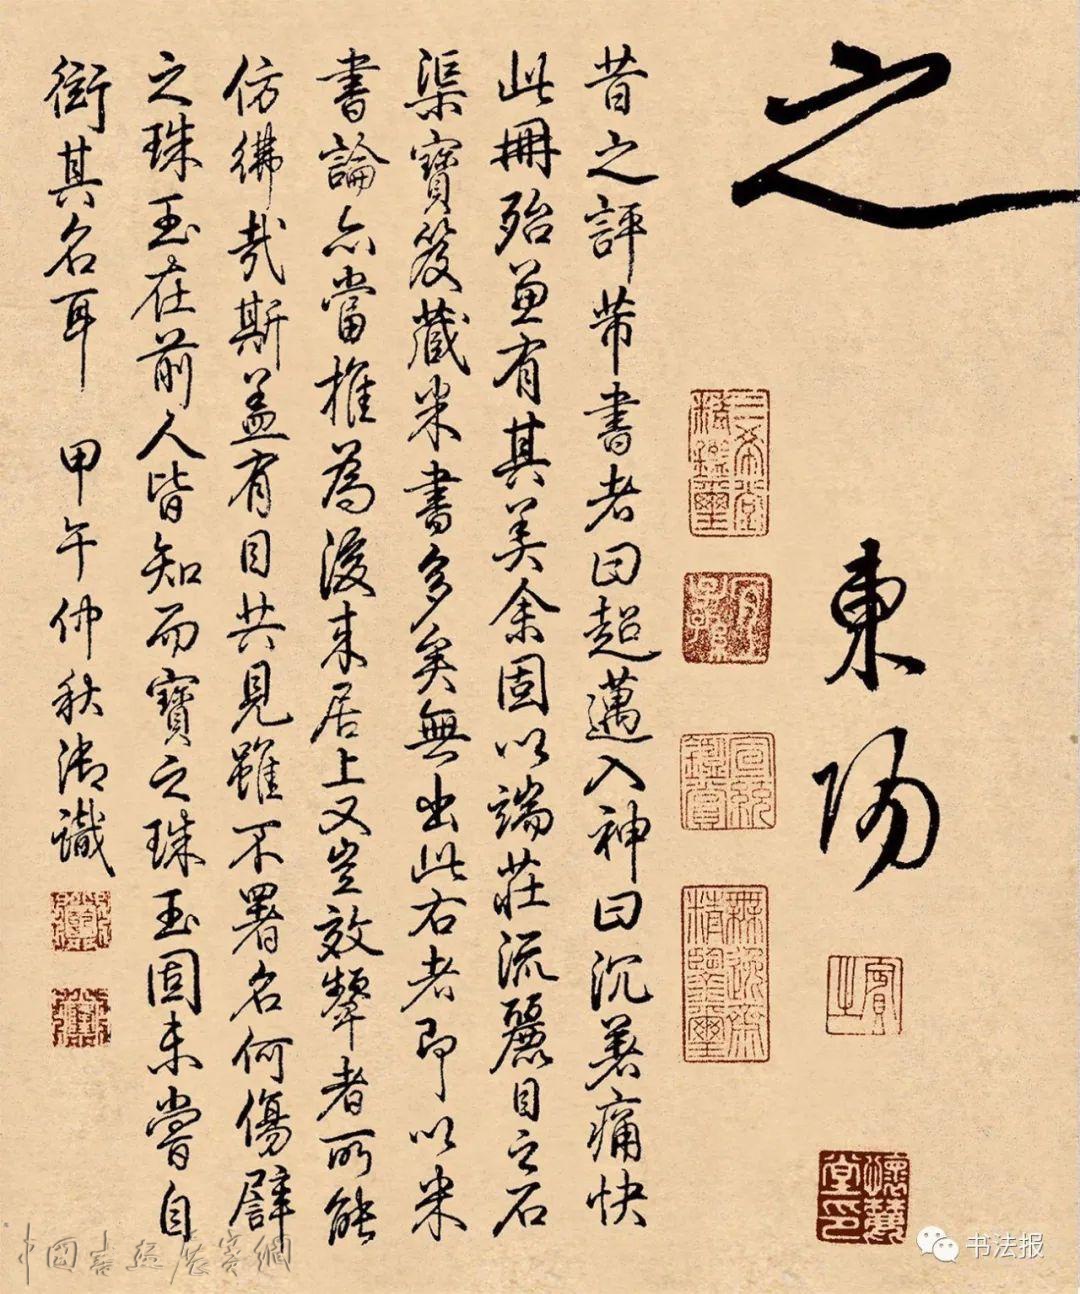 之
東陽
三希堂精鑑璽
宜子孫
宣統鑑賞
無逸齋精鑑璽
懷麓堂印
昔之評芾書者曰超邁入神曰沉著痛快
此冊殆兼有其美余固以端莊流麗目之石
渠寶笈藏米書多矣無出此右者即以米
書論亦當推為後來居上又豈效顰者所能
仿彿哉斯蓋有目共見雖不署名何傷譬
之珠玉在前人皆知而寶之珠玉固未嘗自
衒其名耳 甲午仲秋御識
书法报
中國書畫展賽網